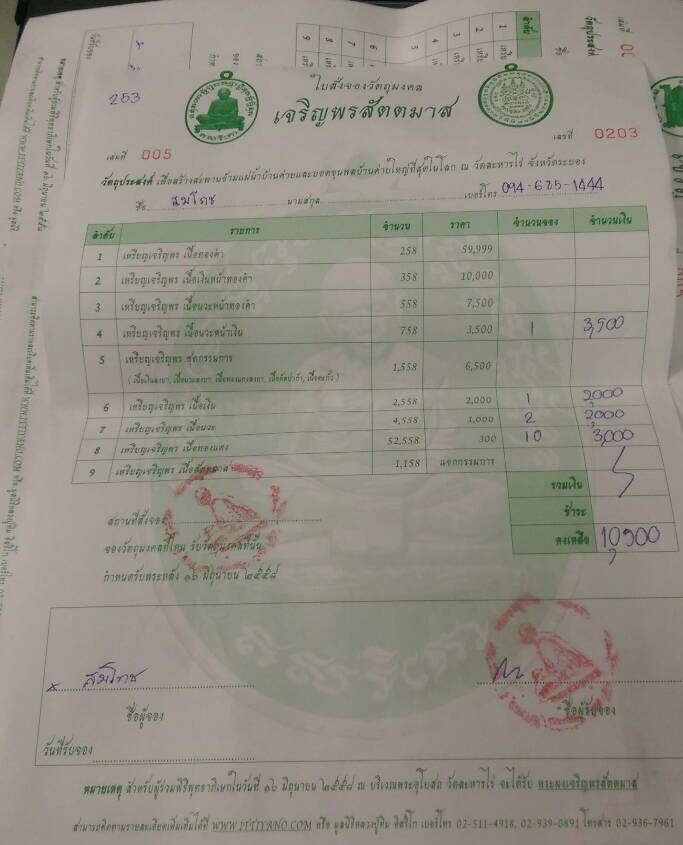 253
ใบสั่งจองวัตถุมงคล
เจริญพรสัตตมาส
เล่มที่ 005
เลขที่ 0203
วัตถุประสงค์ เพื่อสร้างสะพานข้ามแม่น้ำบ้านค่ายและยอดขุนพลบ้านค่ายใหญ่ที่สุดในโลก ณ วัดละหารไร่ จังหวัดระยอง
ชื่อ สมโภช นามสกุล เบอร์โทร 094-685-1444
ลำดับ รายการ จำนวน ราคา จำนวนจอง จำนวนเงิน
1 เหรียญเจริญพร เนื้อทองคำ 258 59,999
2 เหรียญเจริญพร เนื้อเงินหน้าทองคำ 358 10,000
3 เหรียญเจริญพร เนื้อนวะหน้าทองคำ 558 7,500
4 เหรียญเจริญพร เนื้อนวะหน้าเงิน 758 3,500 1 3,500
5 เหรียญเจริญพร ชุดกรรมการ 1,558 6,500
6 เหรียญเจริญพร เนื้อเงิน 2,558 2,000 1 2,000
7 เหรียญเจริญพร เนื้อนวะ 4,558 1,000 2 2,000
8 เหรียญเจริญพร เนื้อทองแดง 52,558 300 10 3,000
9 เหรียญเจริญพร เนื้อสัตตมาส 1,158 แจกกรรมการ
รวมเงิน
ชำระ
คงเหลือ 10,500
สถานที่สั่งจอง
จองวัตถุมงคลที่ไหน รับวัตถุมงคลที่นั้น
กำหนดรับพระหลัง ๑๖ มิถุนายน ๒๕๕๘
สมโภช
ชื่อผู้จอง
ชื่อผู้รับจอง
วันที่รับจอง
หมายเหตุ สำหรับผู้ร่วมพิธีพุทธาภิเษกในวันที่ ๑๖ มิถุนายน ๒๕๕๘ ณ บริเวณพระอุโบสถ วัดละหารไร่ จะได้รับ พระผงเจริญพรสัตตมาส
สามารถติดตามรายละเอียดเพิ่มเติมได้ที่ WWW.ITTIYANO.COM หรือ มูลนิธิหลวงปู่ทิม อิสริโก เบอร์โทร 02-511-4918, 02-939-0891 โทรสาร 02-936-7961